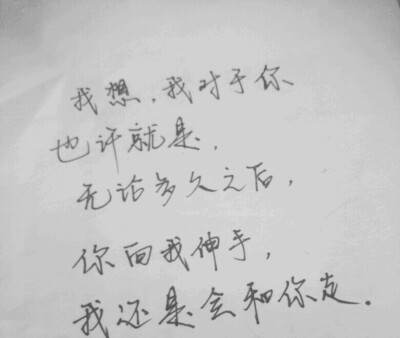 我想,我对于你
也许就是,
无论多久之后,
你向我伸手,
我还是会和你走.